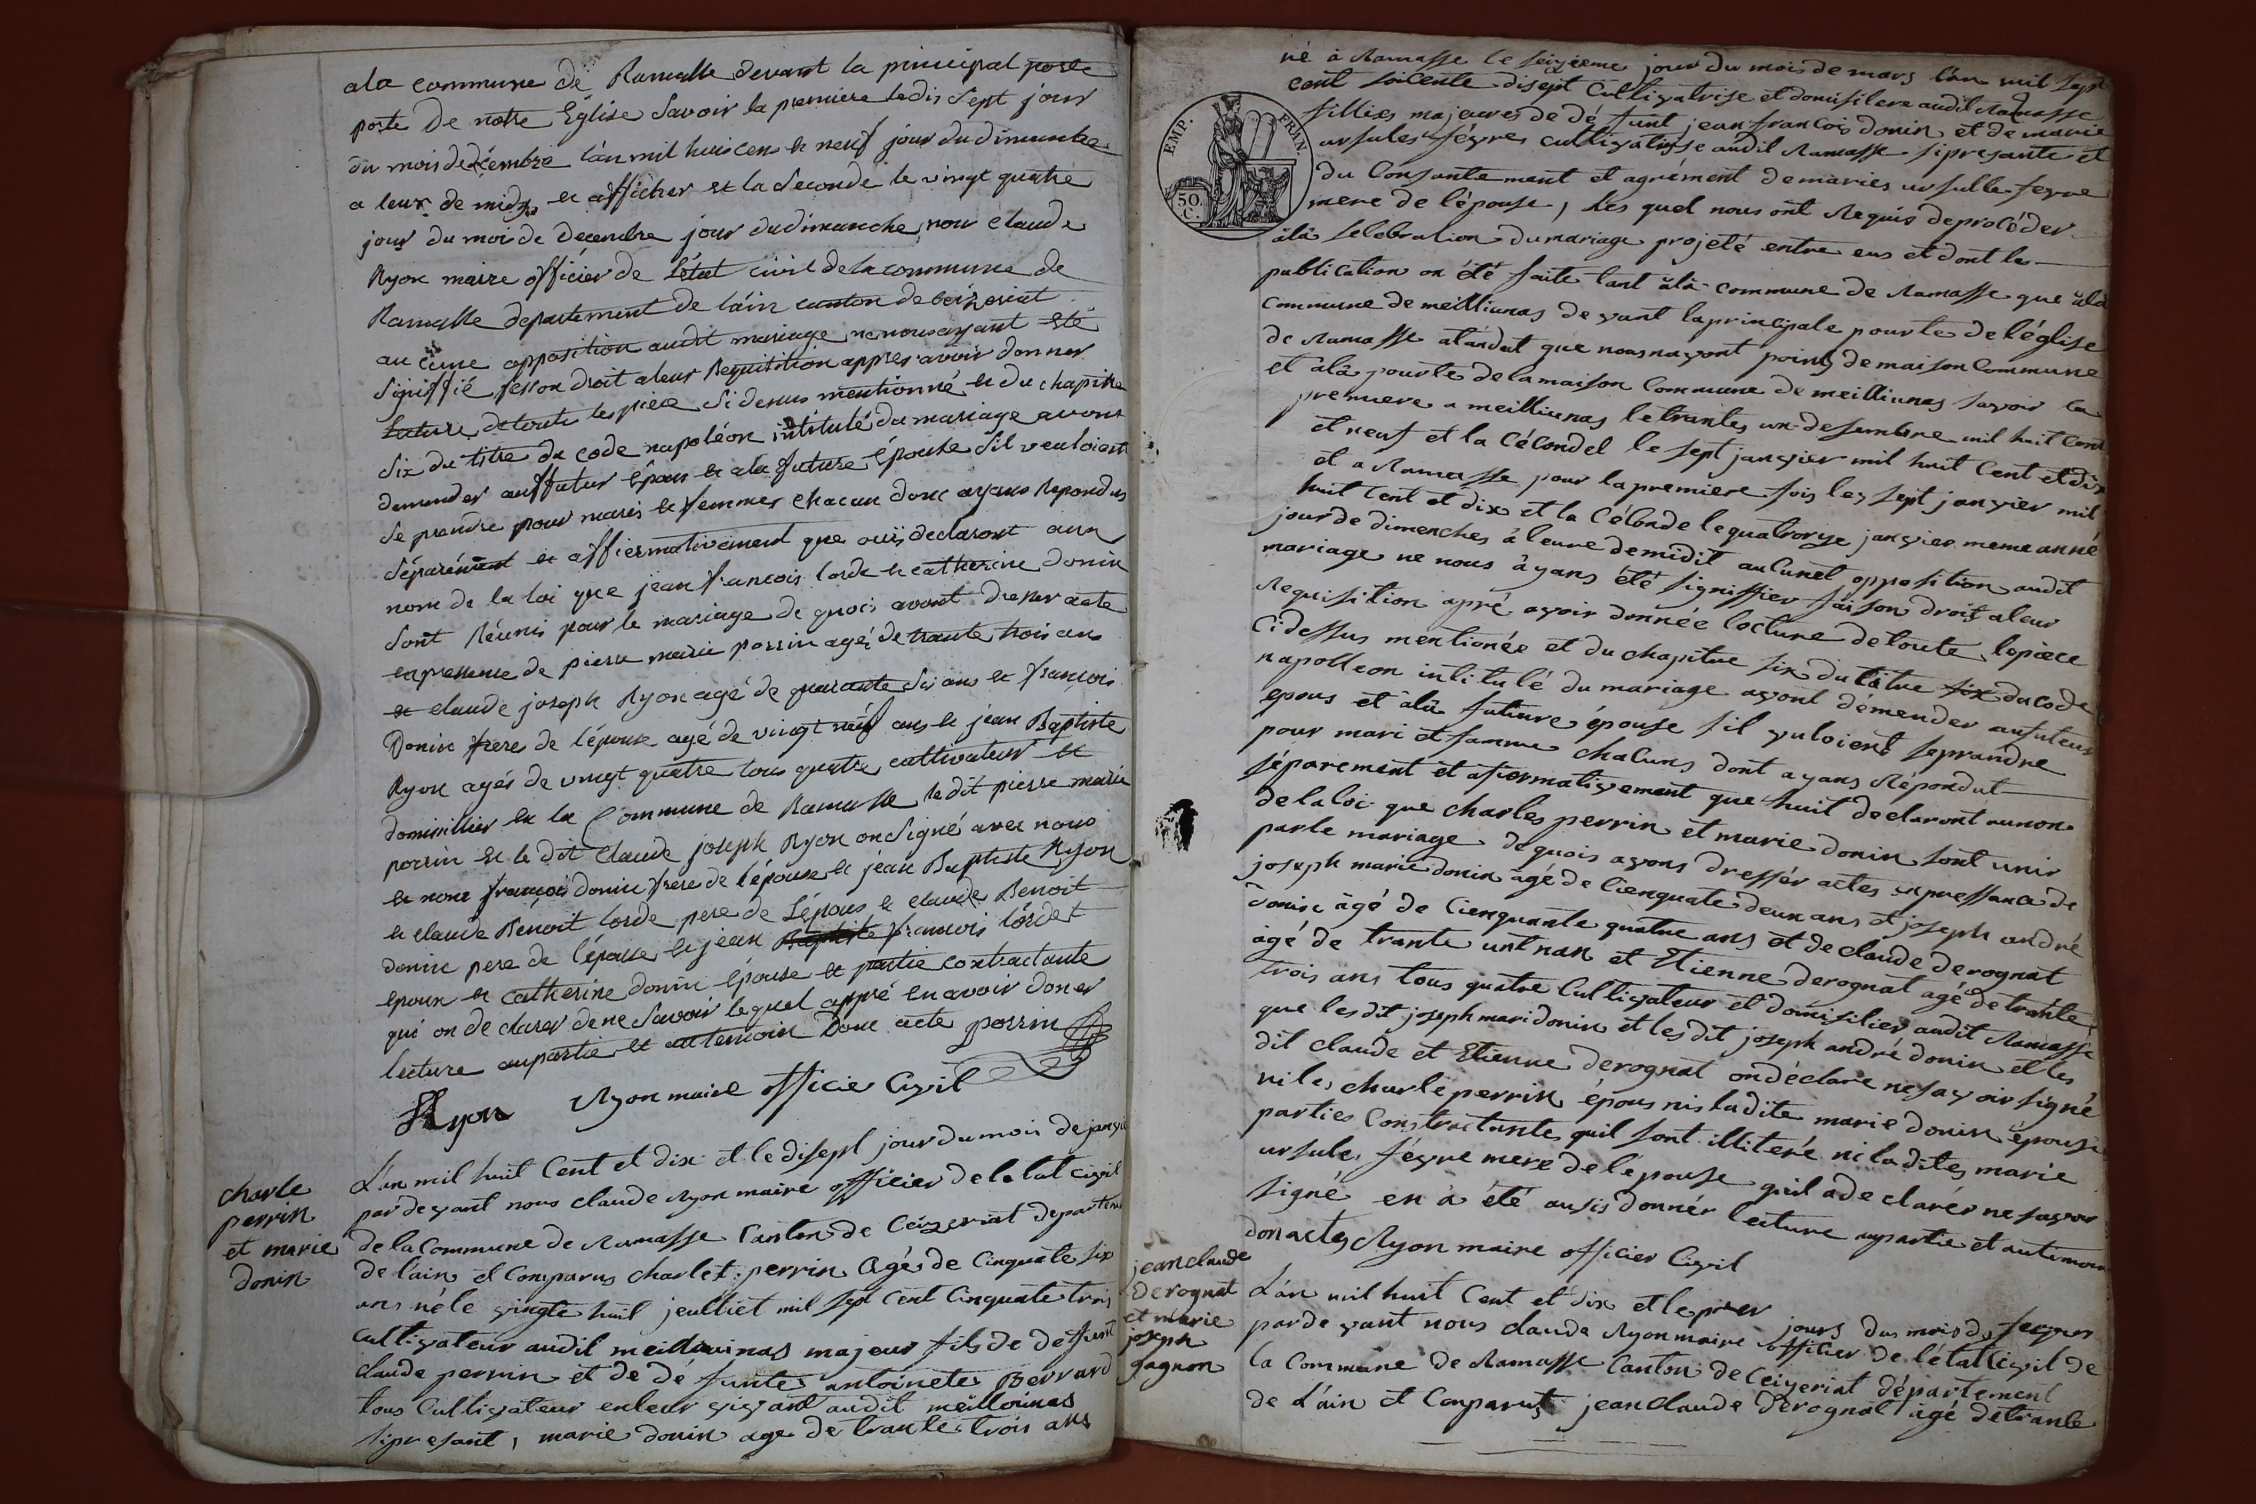 ala commune de Ramasse devant la principal porte
porte De notre Église Savoir la premiere le dis Sept jour
du mois de décembre l'an mil huis cens et neuf jour du dimanche
a leur de midy et afficher et la Seconde le vingt quatre
jour du mois de Decembre jour du dimanche, nous claude
Ryon maire officier de l'état civil de la commune de
Ramasse departement de l'ain canton de ceizeriat
au cune opposition audit mariage ne nous ayant été
signiffié fesson droit a leur Requisition appres avoir donner
lecture de toute les piece Si desus mentionné et du chapitre
Six du titre du code napoléon intitulé du mariage avons
demander au futur épous et ala future épouse S'il veuloient
Se prendre pour maris et femmes chacun donc ayans Repondus
Séparément et affiermativement que ouis declarons aux
nom de la loi que jean francois lorde et catherine donin
sont Réunis pour le mariage de quois avont dresser acte
en presence de pierre marie possin agé de trante trois ans
et claude joseph Ryon agé de quarante Six ans et francois
Donin frere de l'épouse agé de vingt neuf ans et jean Baptiste
Ryon agés de vingt quatre tous quatre cultivateur et
domicillier en la Commune de Ramasse le dit pierre marie
possin et le dit Claude joseph Ryon on Signé avec nous
et nom francois donin frere de l'épouse et jean Baptiste Ryon
et claude Benoit lorde pere de l'épous et claude Benoit
donin pere de l'épouse et jean francois lorde
epoux et catherine donin épouse et partie contractante
qui on de clarer de ne Savoir lequel appré en avoir doner
lecture au partie et au temoin Donc acte possin
Ryon Ryon maire officie Civil
charle
perrin
et marie
donin
L'an mil huit Cent et dix et le disept jour du mois de janvi
par devant nous claude Ryon maire officier de le tat Civil
de la Commune de Ramasse Canton de Ceizeriat departem
de l'ain et Comparus charlet perrin Agé de Cinquate six
ans né le vingte huit jeulliet mil sept Cent Cinquate trois
Cultivateur audit meillounas majeur fils de defunt
claude perrin et de dé funte antoinete Berrard
tous Cultivateur enleur vivant audit meillounas
si present, marie donin age de trante trois ans
né à Ramasse le seizieme jour du mois de mars l'an mil sept
cent soicente disept Cultivatrise et domisiliere audit Ramasse
EMP. FRAN.
50.
C.
fillies majeures de dé funt jean francois donin et de marie
ursules févre cultivatrise audit Ramasse si presante et
du Consantement et agrément de maries ursulle fevre
mere de l'épouse, Les quel nous ont Requis de procéder
àla selebration du mariage projeté entre eus et dont le
publication on été faite tant àlà commune de Ramasse que àlà
Commune de meilliunas de vant la principale pourte de l'église
de Ramasse atandut que nous navont point de maison Commune
et àlà pourte de la maison Commune de meilliunas savoir la
premiere a meilliunas le trantes un desembre mil huit Cent
et neuf et la Cécondel le sept janvier mil huit Cent et dix
et a Ramasse pour la premiere fois les sept janvier mil
huit Cent et dix et la Céconde le quatrorze janvier meme anné
jour de dimenches à leure de midit au Cunet opposition audit
mariage ne nous àyans été signiffier faison droit a leur
Requisition apré avoir donnée lecture de toute la piece
Cidessus mentionée et du chapitre six du titre six du code
napolleon intitulé du mariage avont démender au futeur
epous et àla future épouse s'il vuloient se prandre
pour mari et famme chacuns dont ayans Répondut
séparement et afiermativement que huit declaront aunon
de la loi que charles perrin et marie donin sont unir
par le mariage de quois avons dressér actes en pressance de
joseph marie donin âgé de Cienquate deux ans et joseph andré
donin âgé de Cienquante quatre ans et de claude derognat
âgé de trante unt nan et Etienne derognat agé de trante
trois ans tous quatre Cultivateur et domisiliér audit Ramasse
que les dit joseph mari donin et les dit joseph andré donin et les
dit claude et Etienne derognat on déclare ne savoir signé
ni les charle perrin épous nis ladite marie donin épouse
parties Constractantes quil sont illiteré ni la dites marie
ursules févre mere de lépouse quil a de clarér ne savoir
signé en à été ausis donnér lecture au partie et au temoin
don actes Ryon maire officier Civil
jean claude
derognat
et marie
joseph
gagnon
L'an mil huit Cent et dix et le pmier jours dus mois de fevrier
par de vant nous claude Ryon maire officier de l'état civil de
la Commune de Ramasse Canton de Ceizeriat département
de L'ain et Comparust jean claude derognat âgé de trante